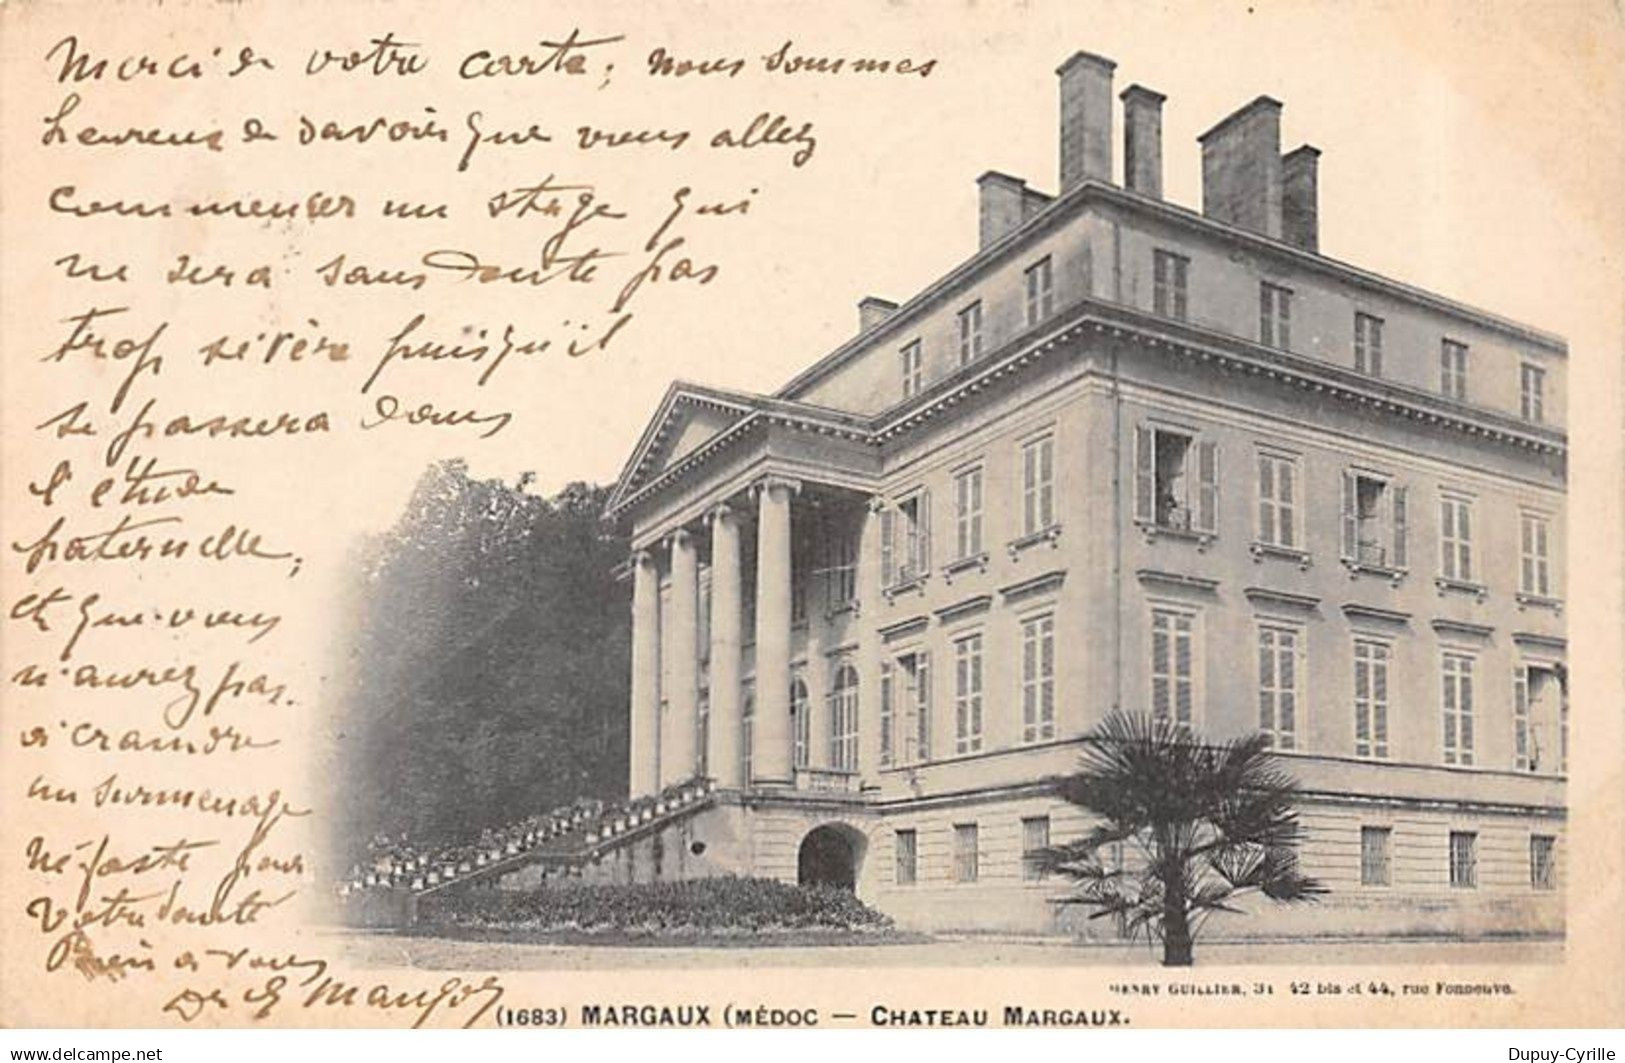 Merci de votre carte; nous sommes
heureux de savoir que vous allez
commencer un stage qui
ne sera sans doute pas
trop sévère puisqu'il
se passera dans
l'étude
paternelle,
et que vous
n'aurez pas
à craindre
un surmenage
néfaste pour
votre santé
Bien à vous
Dr
(1683) MARGAUX (MÉDOC — CHATEAU MARGAUX.
HENRY GUILLIER, 31 42 bis et 44, rue Fonneuve.
www.delcampe.net
Dupuy-Cyrille